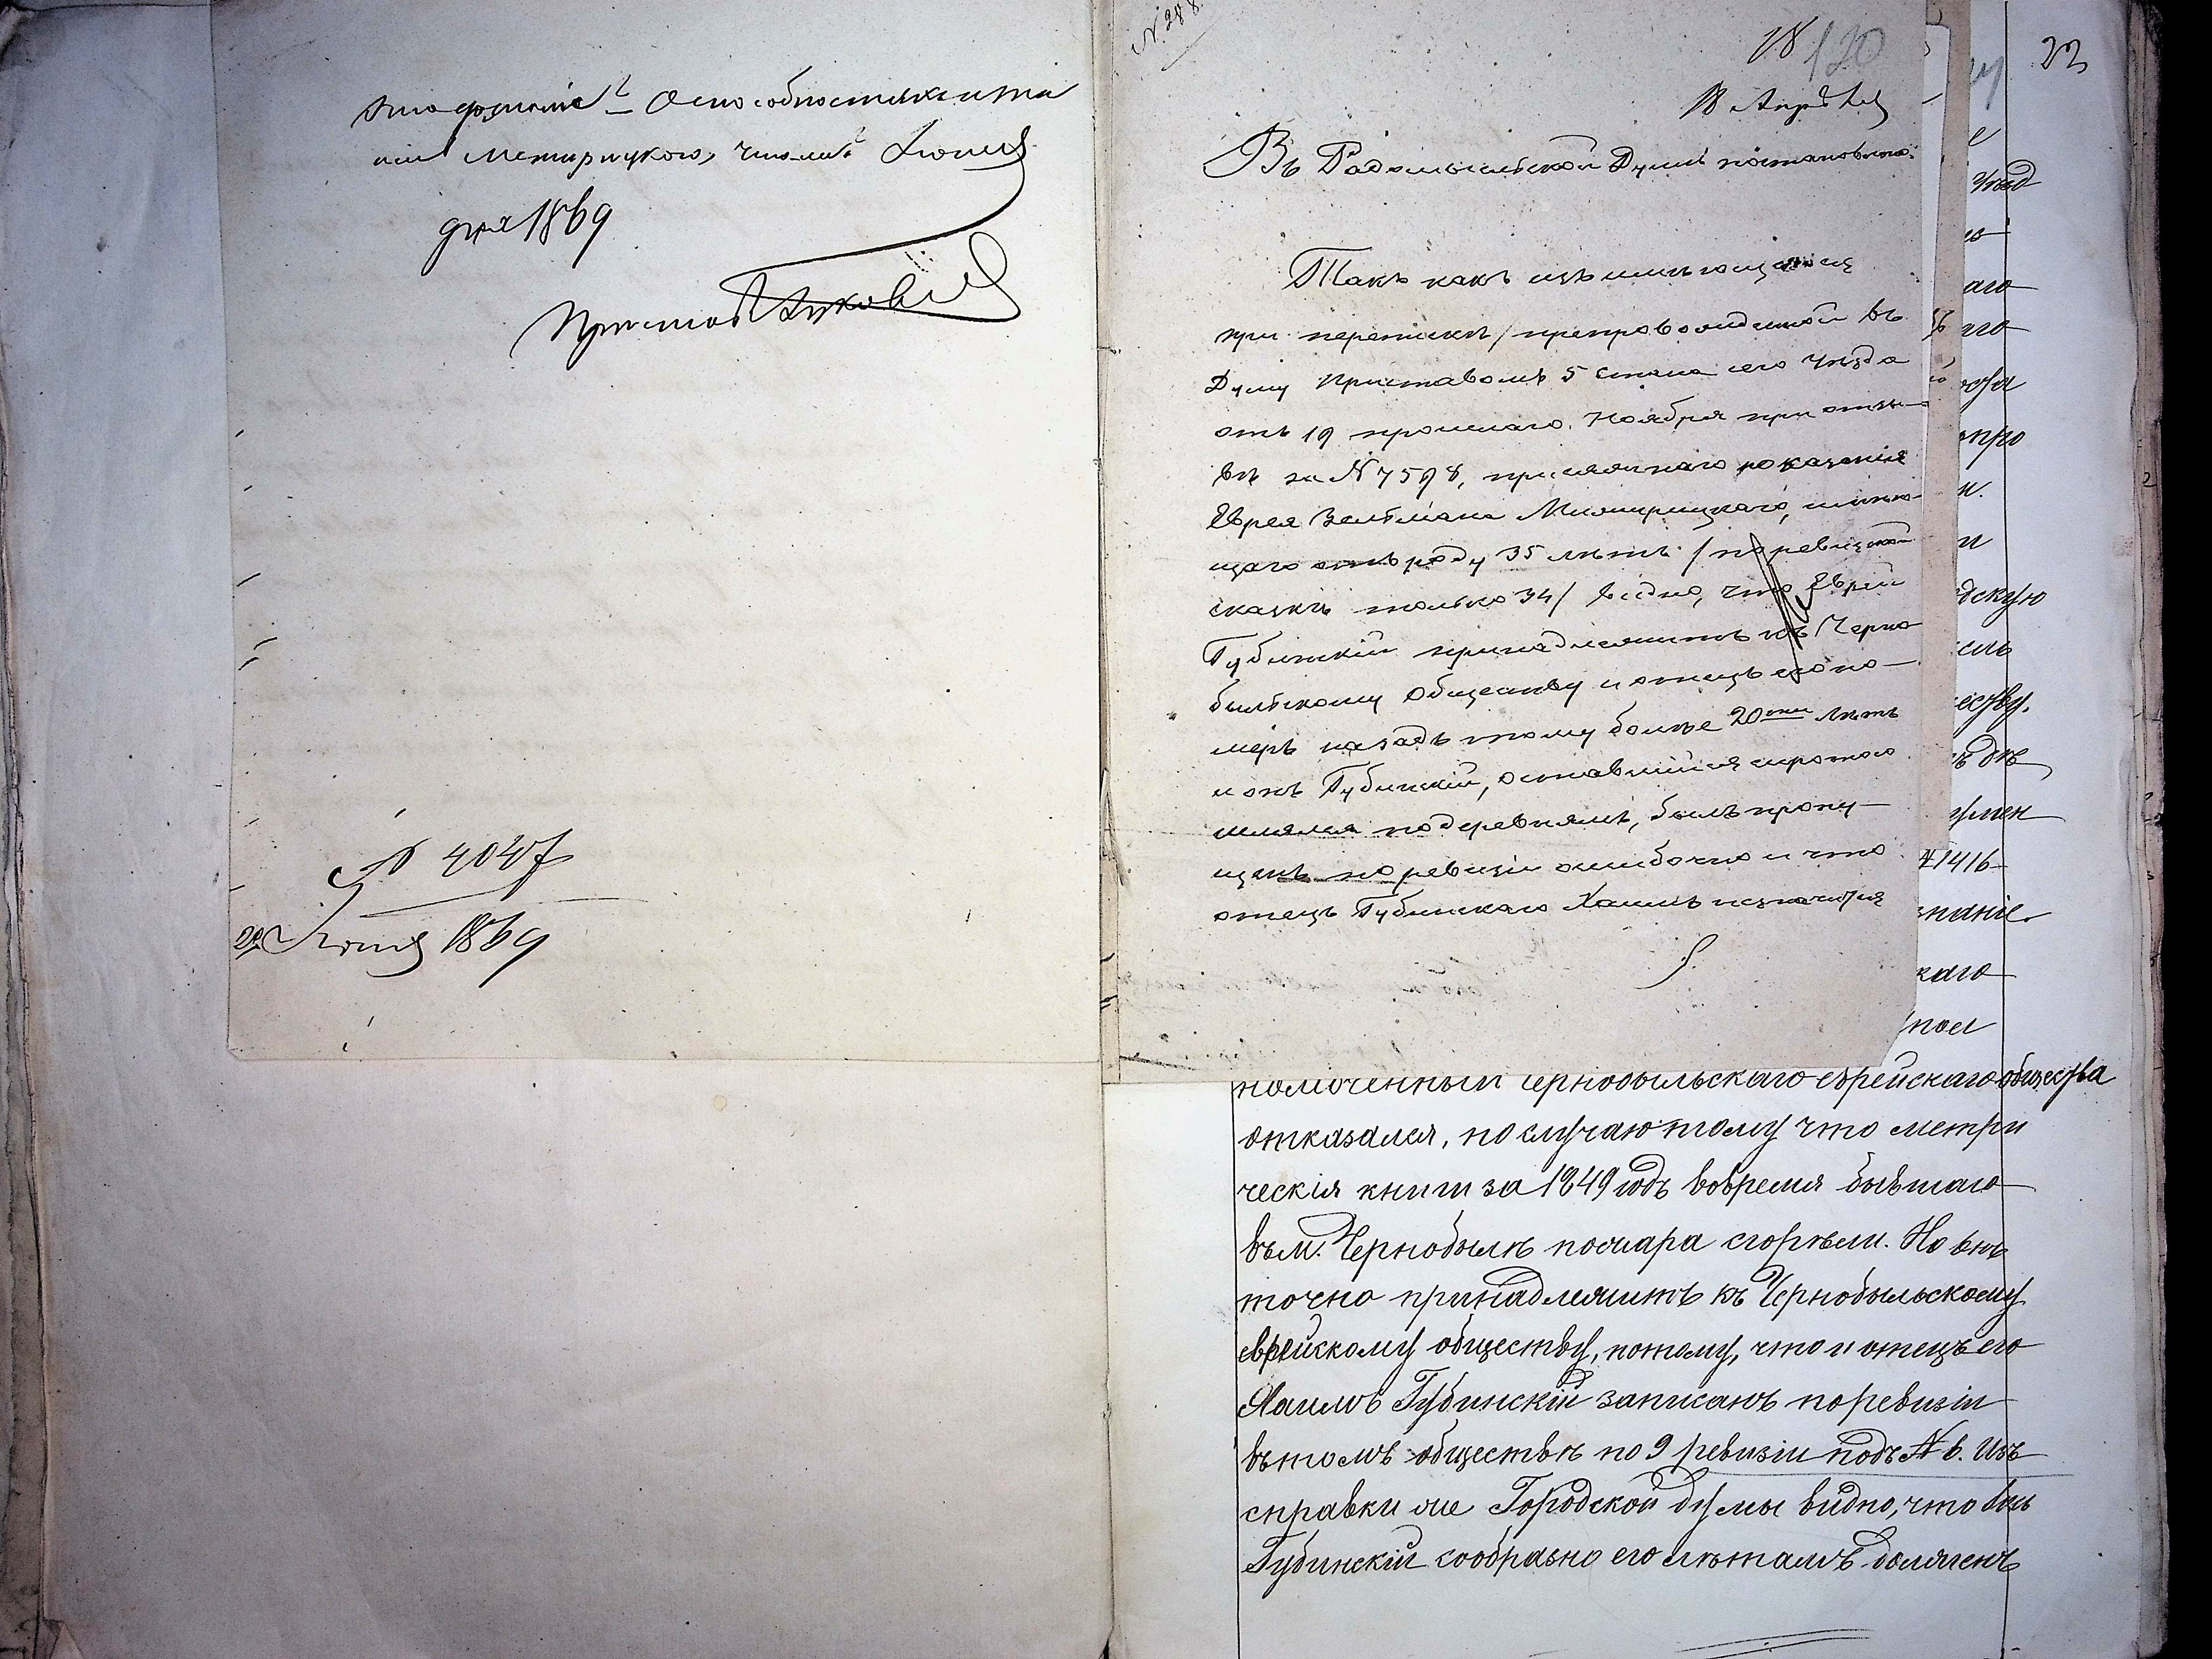 и Межирицкого, числа Июня
дня 1869
Приставъ
№ 4047
Июня 1869
№ 288
18
120
22
18 Апрѣля
Въ Радомысльской Думѣ постановлено:
Такъ какъ изъ имѣющагося
при перепискѣ / препровожденной въ
Думу Приставомъ 5 стана сего уѣзда
отъ 19 прошлаго Ноября при отзы-
вѣ за № 7598, присяжнаго показанія
Еврея Зельмана Межирицкаго, имѣю-
щаго отъ роду 35 лѣтъ / по ревизской
сказкѣ только 34 / видно, что Еврей
Губинскій принадлежитъ къ Черно-
быльскому обществу и отецъ его по-
меръ назадъ тому болѣе 20ти лѣтъ
и онъ Губинскій, оставшійся сиротою
шлялся по деревнямъ, былъ пропу-
щенъ по ревизіи ошибочно и что
отецъ Губинскаго Хаимъ незначится
уѣзд
аго
аго
опро
и.
и
дскую
ель
еству.
1416
знаніе
каго
упол
номоченный чернобыльскаго еврейскаго общества
отказался, по случаю тому что метри
ческія книги за 1849 годъ вовремя бывшаго
въ м. Чернобылѣ пожара сгорѣли. Но онъ
точно принадлежитъ къ Чернобыльскому
еврейскому обществу, потому, что и отецъ его
Хаимъ Губинскій записанъ по ревизіи
въ томъ обществѣ по 9 ревизіи подъ № 6. Изъ
справки же Городской думы видно, что онъ
Губинскій сообразно его лѣтамъ долженъ